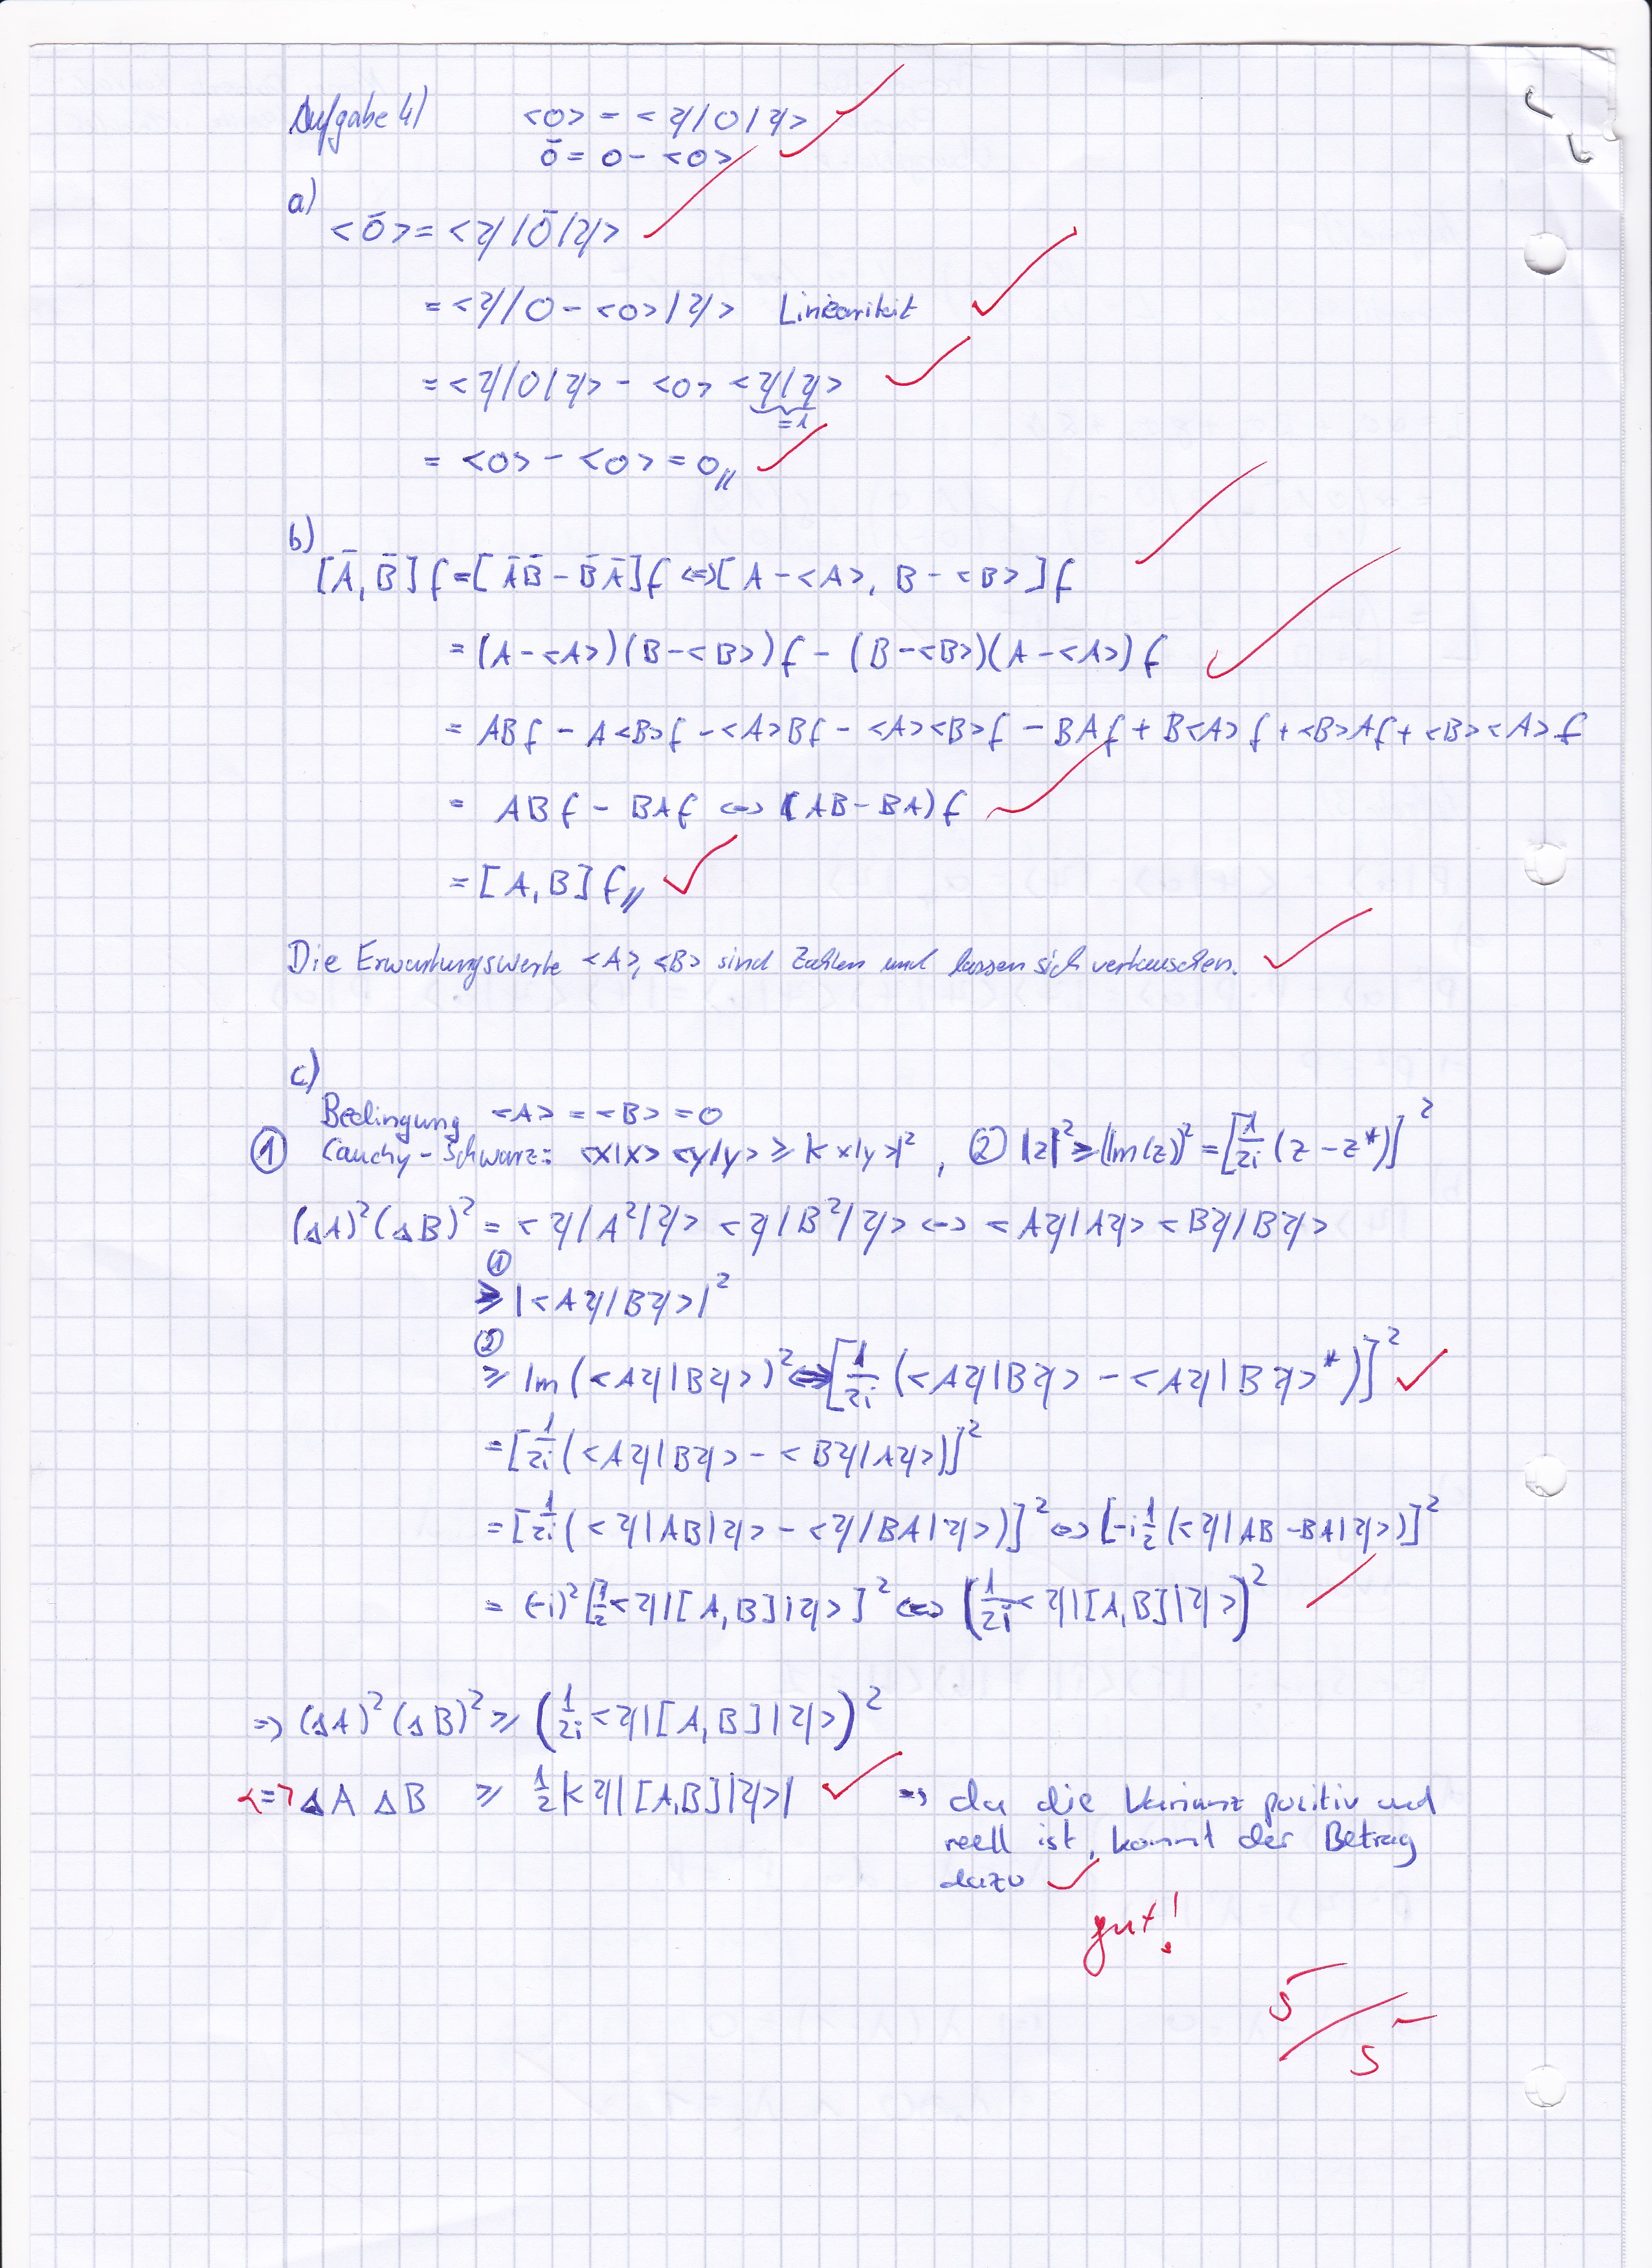 Aufgabe 4) <O> = <ψ|O|ψ>
Ō = O - <O>
a)
<Ō> = <ψ|Ō|ψ>
= <ψ|O - <O>|ψ> Linearität
= <ψ|O|ψ> - <O> <ψ|ψ>
=1
= <O> - <O> = 0
b)
[Ā, B̄] f = [ĀB̄ - B̄Ā] f <=> [A - <A>, B - <B>] f
= (A - <A>)(B - <B>) f - (B - <B>)(A - <A>) f
= ABf - A<B>f - <A>Bf - <A><B>f - BAf + B<A>f + <B>Af + <B><A>f
= ABf - BAf <=> (AB - BA) f
= [A, B] f
Die Erwartungswerte <A>, <B> sind Zahlen und lassen sich vertauschen.
c)
Bedingung <A> = <B> = 0
① Cauchy-Schwarz: <x|x> <y|y> ≥ |<x|y>|², ② |z|² ≥ (Im(z))² = [1/2i (z - z*)]²
(ΔA)² (ΔB)² = <ψ|A²|ψ> <ψ|B²|ψ> <=> <Aψ|Aψ> <Bψ|Bψ>
①
≥ |<Aψ|Bψ>|²
②
≥ Im(<Aψ|Bψ>)² <=> [1/2i (<Aψ|Bψ> - <Aψ|Bψ>*)]²
= [1/2i (<Aψ|Bψ> - <Bψ|Aψ>)]²
= [1/2i (<ψ|AB|ψ> - <ψ|BA|ψ>)]² <=> [-i 1/2 (<ψ|AB - BA|ψ>)]²
= (-i)² [1/2 <ψ|[A,B]|ψ>]² <=> (1/2i <ψ|[A,B]|ψ>)²
=> (ΔA)² (ΔB)² ≥ (1/2i <ψ|[A,B]|ψ>)²
<=> ΔA ΔB ≥ 1/2 |<ψ|[A,B]|ψ>| => da die Varianz positiv und
reell ist, kommt der Betrag
dazu
gut!
5/5